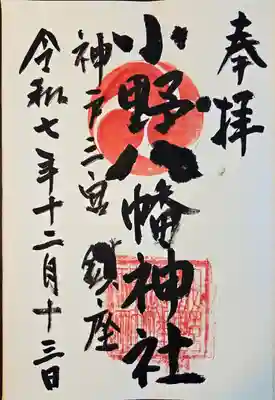 奉拝
小野八幡神社
神戸三宮 鎮座
令和七年十二月十三日